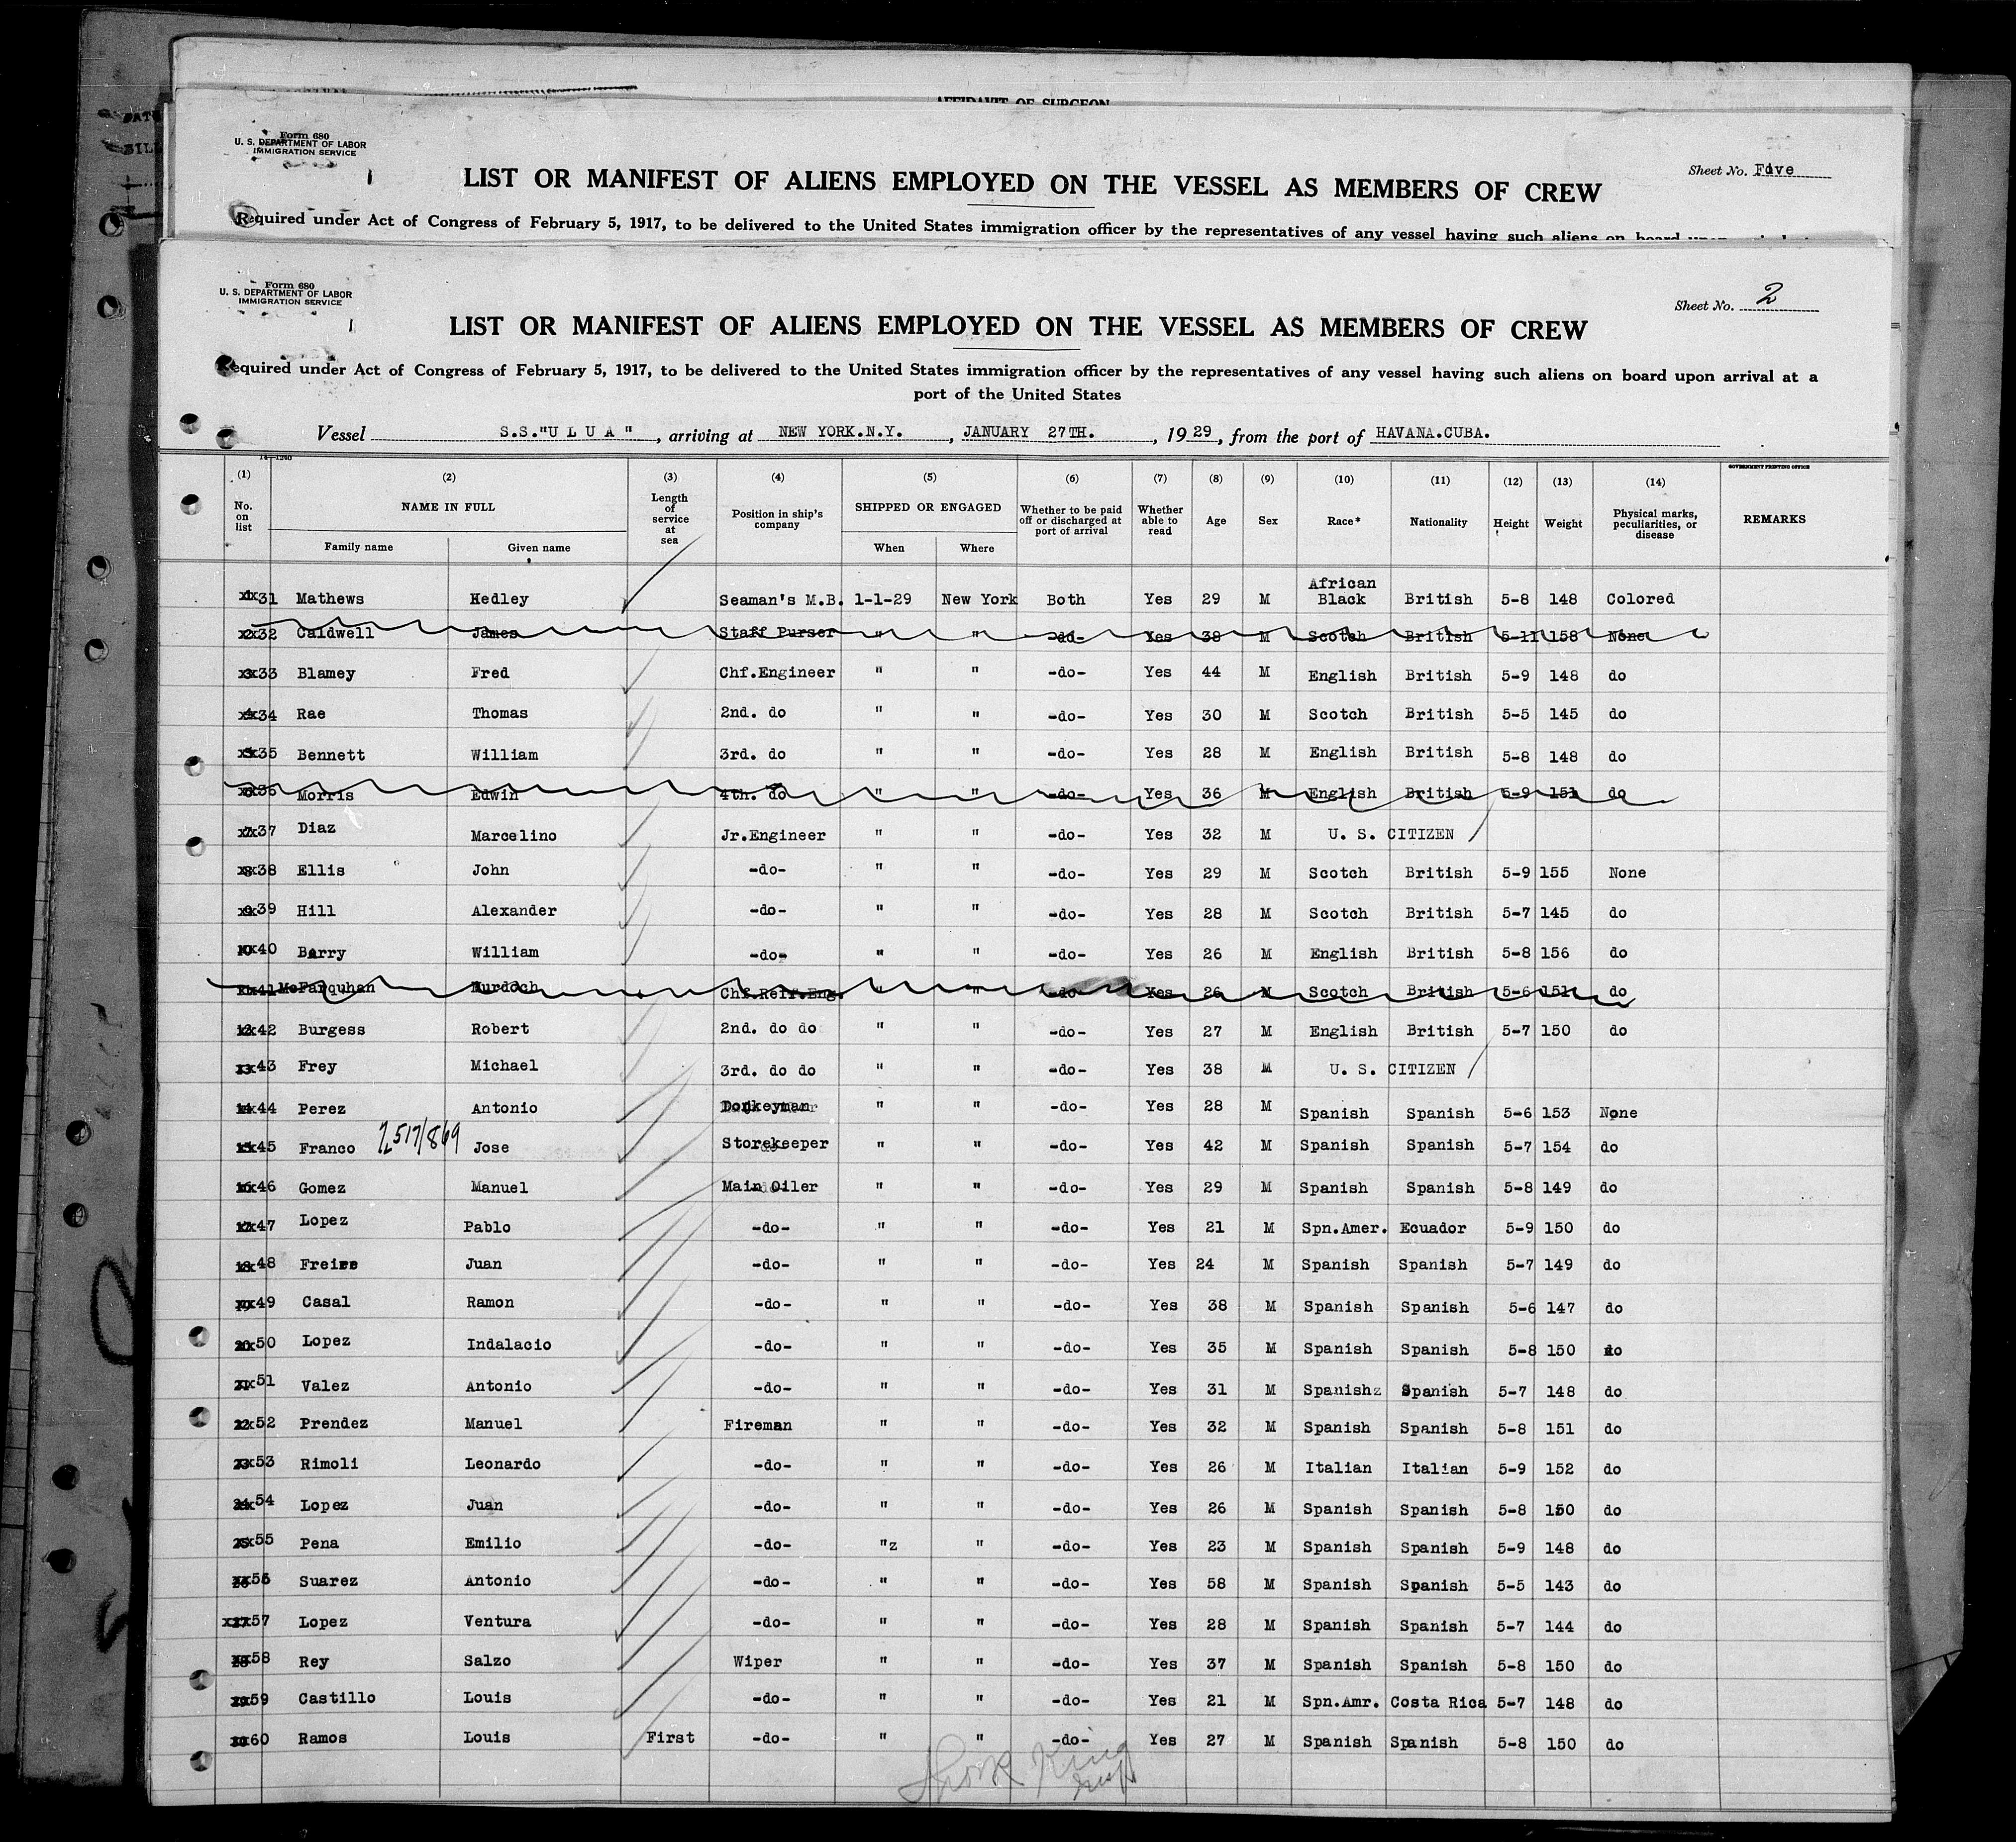 AFFIDAVIT OF SURGEON
Form 680
U. S. DEPARTMENT OF LABOR
IMMIGRATION SERVICE
Sheet No. Five
LIST OR MANIFEST OF ALIENS EMPLOYED ON THE VESSEL AS MEMBERS OF CREW
Required under Act of Congress of February 5, 1917, to be delivered to the United States immigration officer by the representatives of any vessel having such aliens on board upon
Form 680
U. S. DEPARTMENT OF LABOR
IMMIGRATION SERVICE
Sheet No. 2
LIST OR MANIFEST OF ALIENS EMPLOYED ON THE VESSEL AS MEMBERS OF CREW
Required under Act of Congress of February 5, 1917, to be delivered to the United States immigration officer by the representatives of any vessel having such aliens on board upon arrival at a
port of the United States
Vessel S.S."U L U A", arriving at NEW YORK.N.Y., JANUARY 27TH., 1929, from the port of HAVANA.CUBA.
14-1240
GOVERNMENT PRINTING OFFICE
(1) (2) (3) (4) (5) (6) (7) (8) (9) (10) (11) (12) (13) (14)
No. on list NAME IN FULL Length of service at sea Position in ship's company SHIPPED OR ENGAGED Whether to be paid off or discharged at port of arrival Whether able to read Age Sex Race* Nationality Height Weight Physical marks, peculiarities, or disease REMARKS
Family name Given name When Where
31 Mathews Hedley Seaman's M.B. 1-1-29 New York Both Yes 29 M African Black British 5-8 148 Colored
32 Caldwell James Staff Purser " " -do- Yes 38 M Scotch British 5-11 158 None
33 Blamey Fred Chf.Engineer " " -do- Yes 44 M English British 5-9 148 do
34 Rae Thomas 2nd. do " " -do- Yes 30 M Scotch British 5-5 145 do
35 Bennett William 3rd. do " " -do- Yes 28 M English British 5-8 148 do
36 Morris Edwin 4th. do " " -do- Yes 36 M English British 5-9 151 do
37 Diaz Marcelino Jr.Engineer " " -do- Yes 32 M U. S. CITIZEN
38 Ellis John -do- " " -do- Yes 29 M Scotch British 5-9 155 None
39 Hill Alexander -do- " " -do- Yes 28 M Scotch British 5-7 145 do
40 Barry William -do- " " -do- Yes 26 M English British 5-8 156 do
41 McFarquhan Murdoch Chf.Refr.Eng. " " -do- Yes 26 M Scotch British 5-6 151 do
42 Burgess Robert 2nd. do do " " -do- Yes 27 M English British 5-7 150 do
43 Frey Michael 3rd. do do " " -do- Yes 38 M U. S. CITIZEN
44 Perez Antonio Donkeyman " " -do- Yes 28 M Spanish Spanish 5-6 153 None
45 Franco 2517/869 Jose Storekeeper " " -do- Yes 42 M Spanish Spanish 5-7 154 do
46 Gomez Manuel Main Oiler " " -do- Yes 29 M Spanish Spanish 5-8 149 do
47 Lopez Pablo -do- " " -do- Yes 21 M Spn.Amer. Ecuador 5-9 150 do
48 Freire Juan -do- " " -do- Yes 24 M Spanish Spanish 5-7 149 do
49 Casal Ramon -do- " " -do- Yes 38 M Spanish Spanish 5-6 147 do
50 Lopez Indalacio -do- " " -do- Yes 35 M Spanish Spanish 5-8 150 do
51 Valez Antonio -do- " " -do- Yes 31 M Spanishz Spanish 5-7 148 do
52 Prendez Manuel Fireman " " -do- Yes 32 M Spanish Spanish 5-8 151 do
53 Rimoli Leonardo -do- " " -do- Yes 26 M Italian Italian 5-9 152 do
54 Lopez Juan -do- " " -do- Yes 26 M Spanish Spanish 5-8 150 do
55 Pena Emilio -do- "z " -do- Yes 23 M Spanish Spanish 5-9 148 do
56 Suarez Antonio -do- " " -do- Yes 58 M Spanish Spanish 5-5 143 do
57 Lopez Ventura -do- " " -do- Yes 28 M Spanish Spanish 5-7 144 do
58 Rey Salzo Wiper " " -do- Yes 37 M Spanish Spanish 5-8 150 do
59 Castillo Louis -do- " " -do- Yes 21 M Spn.Amr. Costa Rica 5-7 148 do
60 Ramos Louis First -do- " " -do- Yes 27 M Spanish Spanish 5-8 150 do